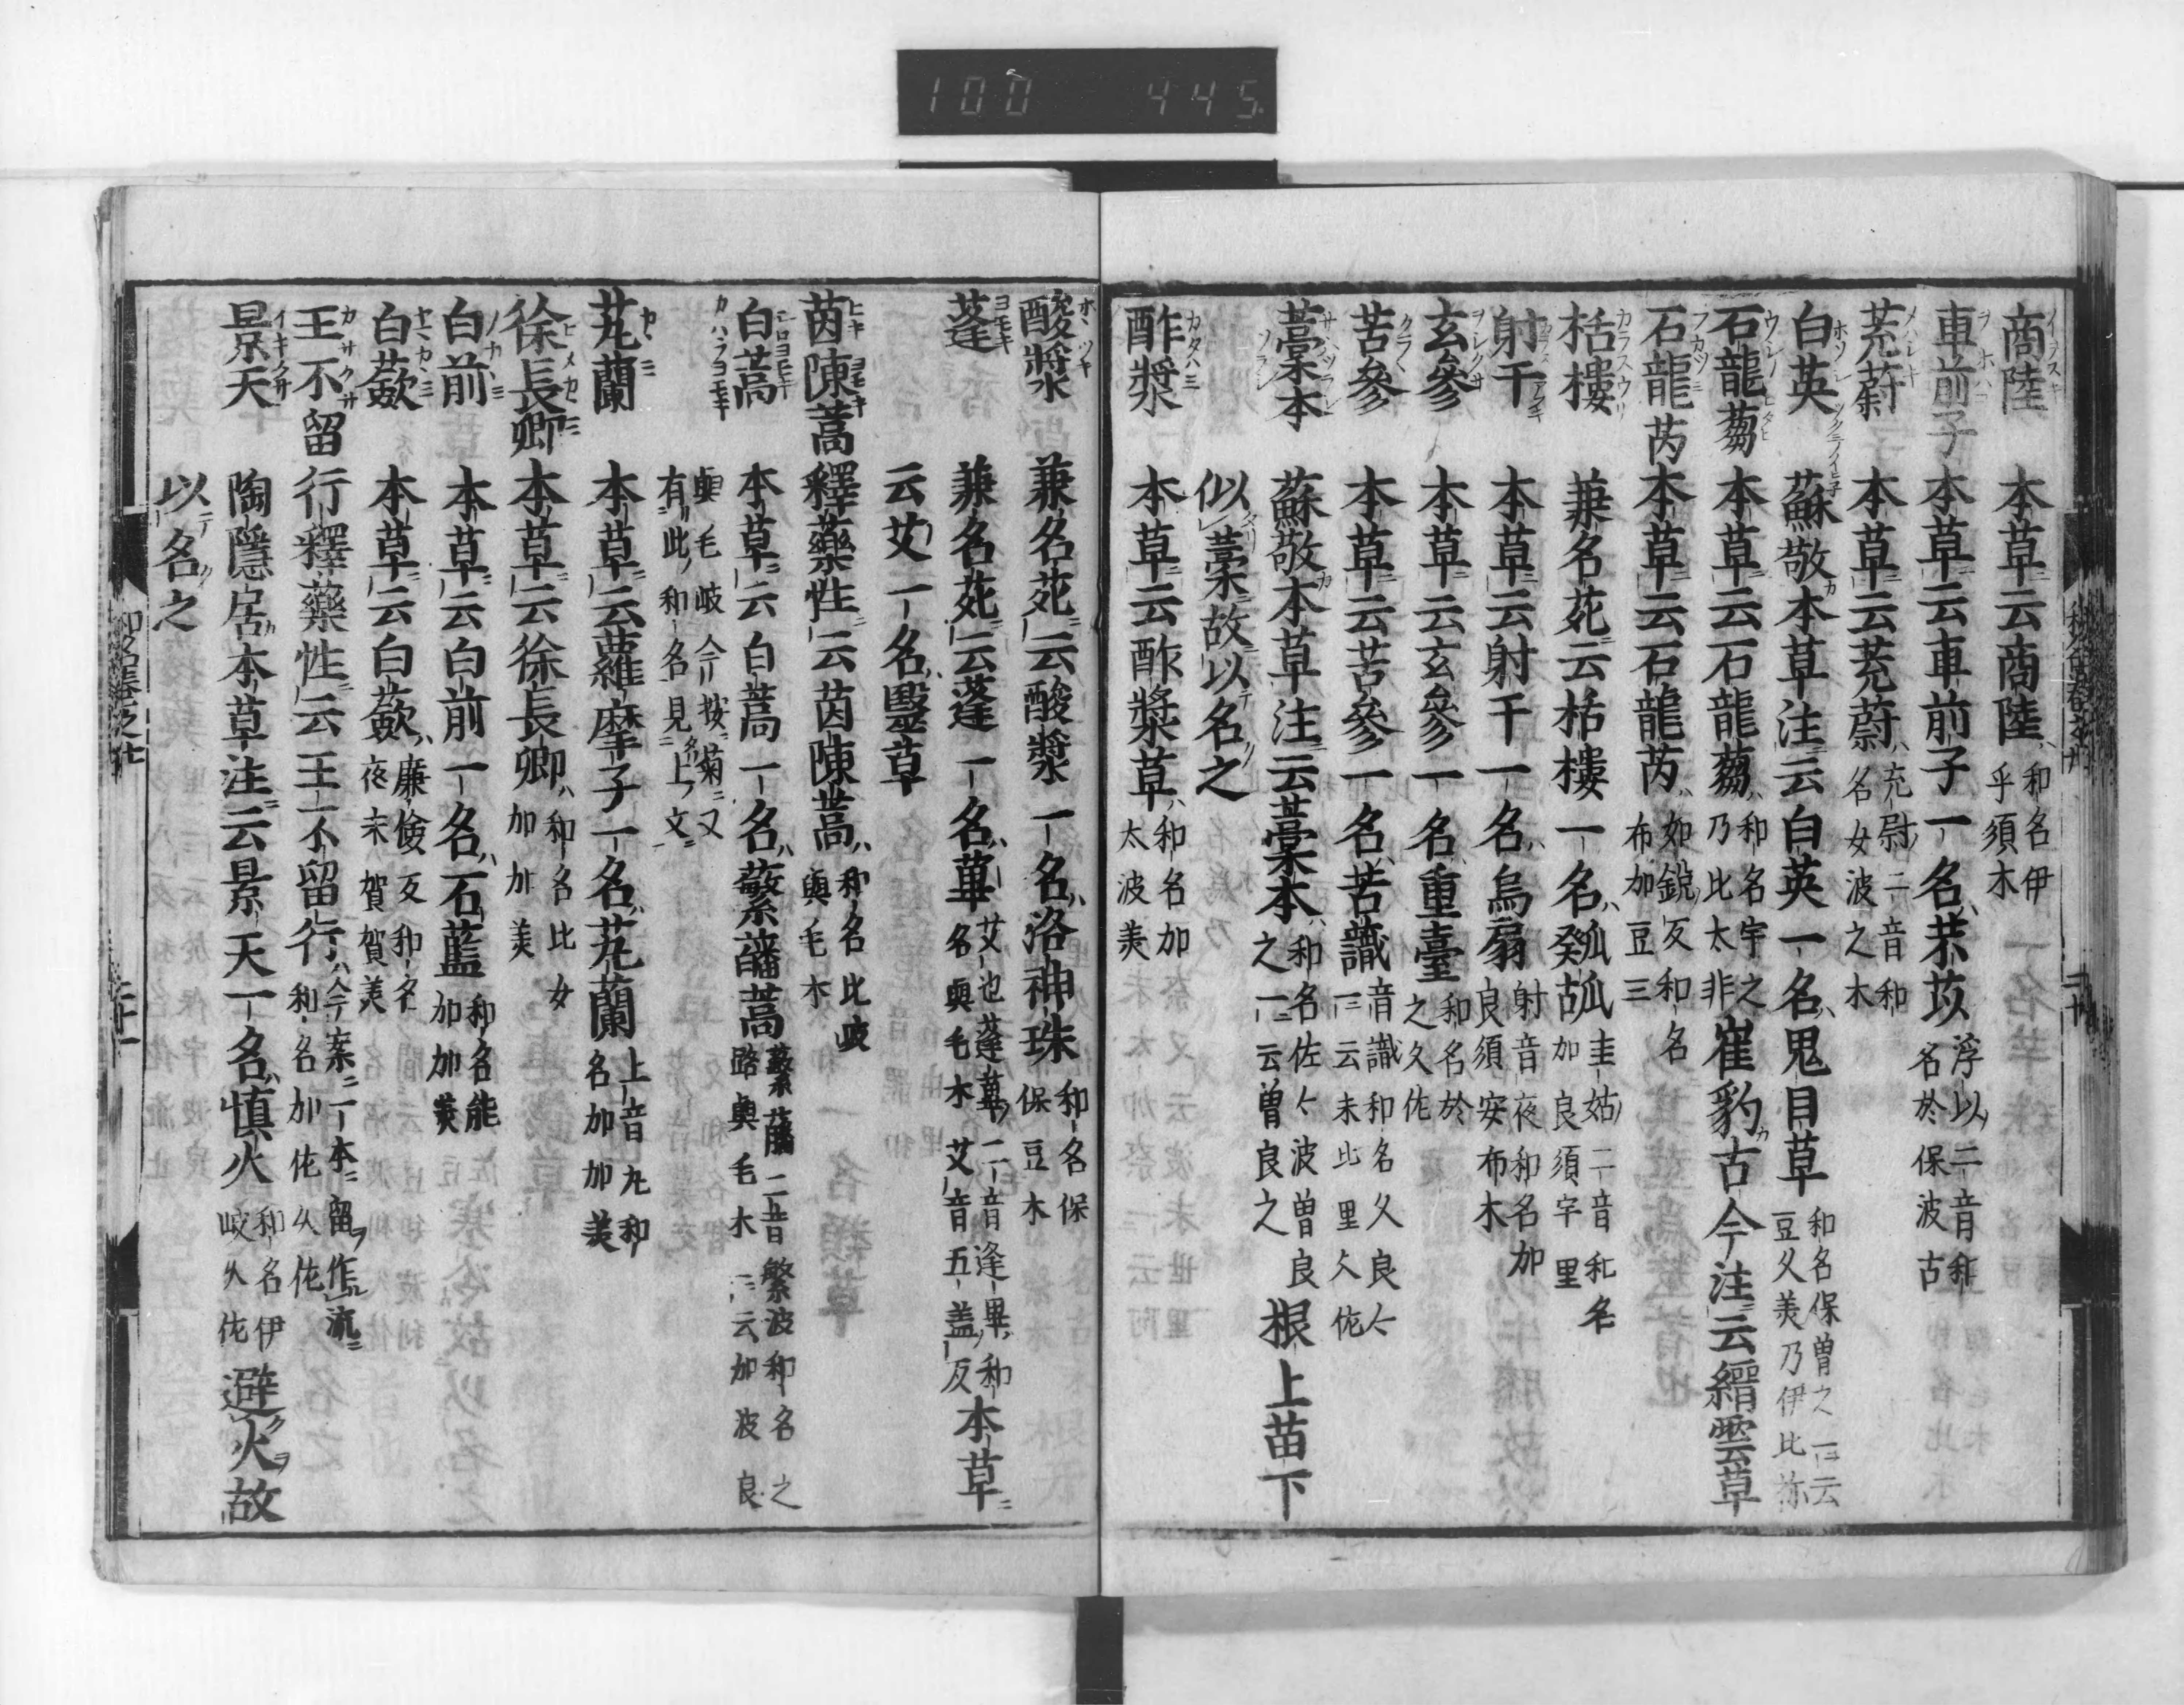 100 445.
商陸 本草云商陸 和名伊乎須木
車前子 本草云車前子一名芣苡 浮以二音和名於保波古
茺蔚 本草云茺蔚 充尉二音和名女波之木
白英 蘇敬本草注云白英一名鬼目草 和名保曽之一云豆久美乃伊比祢
石龍蒭 本草云石龍蒭 和名宇之乃比太非 崔豹古今注云縉雲草
石龍芮 本草云石龍芮 如鋭反和名布加豆三
栝樓 兼名苑云栝樓一名 圭姑二音和名加良須宇里
射干 本草云射干一名烏扇 射音夜和名加良須安布木
玄參 本草云玄參一名重臺 和名於之久佐
苦參 本草云苦參一名苦識 音識和名久良々一云末比里久佐
藁本 蘇敬本草注云藁本 和名佐々波曽良之一云曽良之 根上苗下
似藁故以名之
酢漿 本草云酢漿草 和名加太波美
酸漿 兼名苑云酸漿一名洛神珠 和名保保豆木
蓬 兼名苑云蓬一名蓽 艾也蓬蓽二音逢畢和名與毛木艾音五盖反 本草
云艾一名醫草
茵陳蒿 釋藥性云茵陳蒿 和名比岐與毛木
白蒿 本草云白蒿一名蘩皤蒿 蘩皤二音繁波和名之路與毛木一云加波良
與毛岐今按菊又有此和名見上文
芄蘭 本草云蘿摩子一名芄蘭 上音丸和名加加美
徐長卿 本草云徐長卿 和名比女加加美
白前 本草云白前一名石藍 和名能加加美
白蘞 本草云白蘞 廉儉反和名夜末賀賀美
王不留 行釋藥性云王不留行 今案一本留作流和名加佐久佐
景天 陶隱居本草注云景天一名慎火 和名伊岐久佐 避火故
以名之